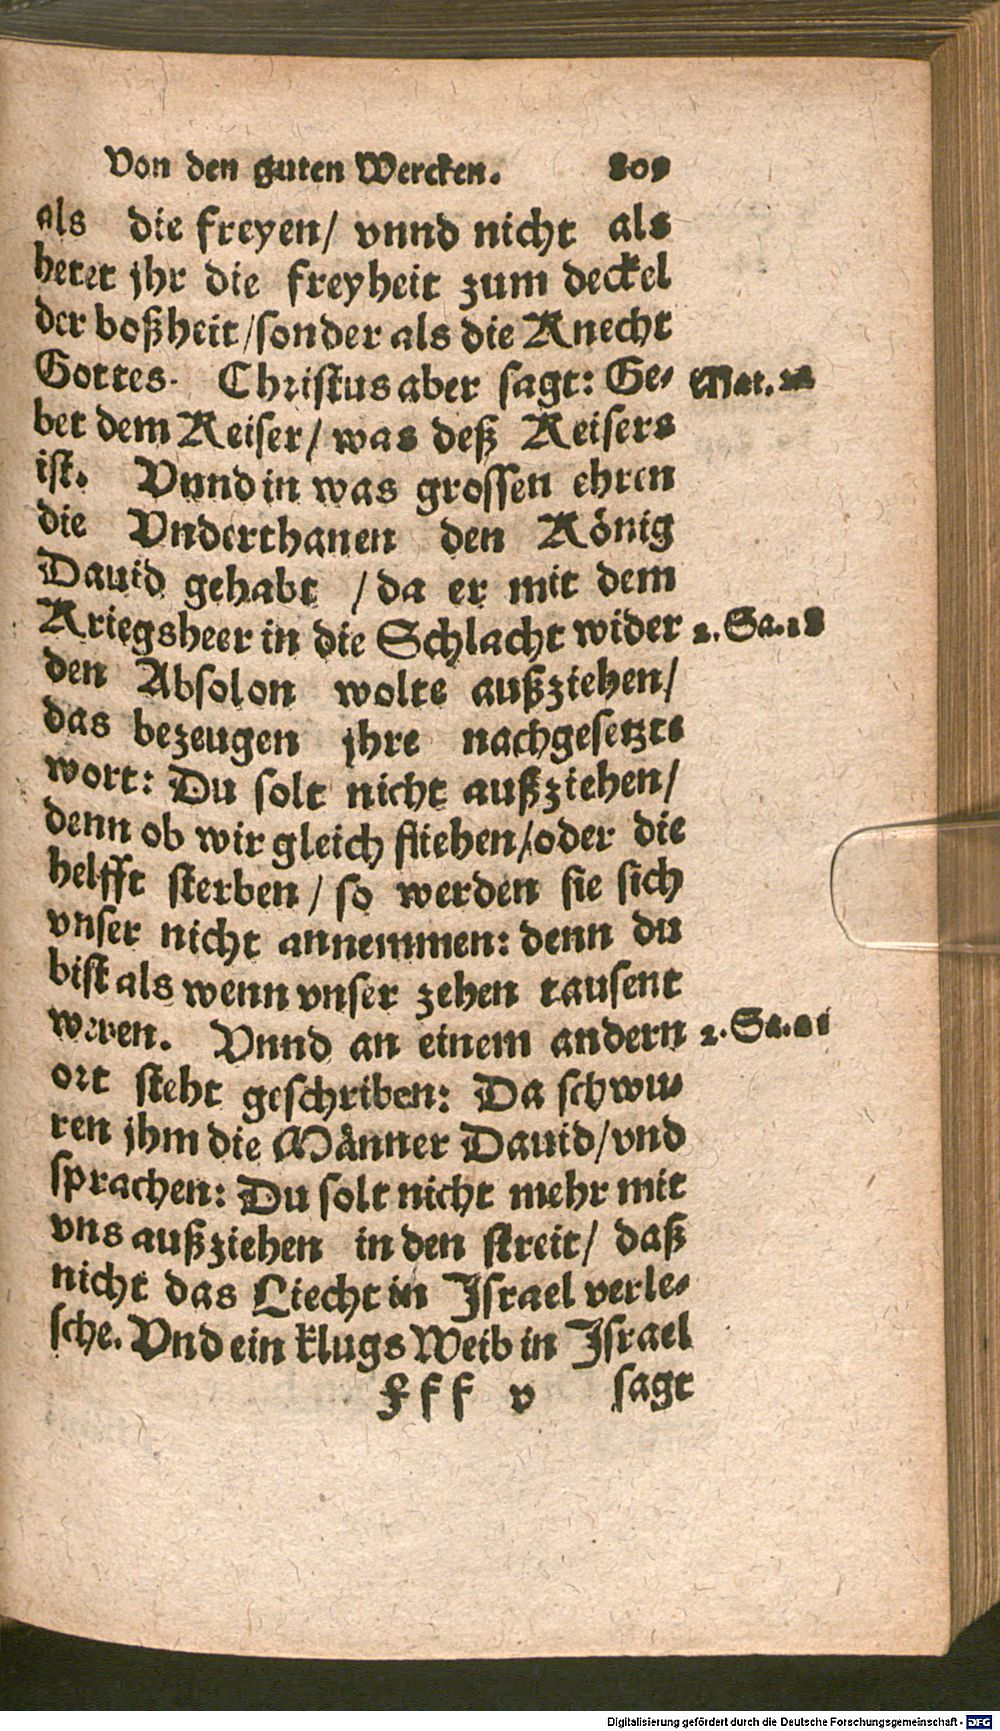 Von den guten Wercken. 809
als die freyen/ vnnd nicht als
hetet jhr die freyheit zum deckel
der boßheit/sonder als die Knecht
Gottes. Christus aber sagt: Ge-
bet dem Keiser/ was deß Keisers
ist. Vnnd in was grossen ehren
die Vnderthanen den König
Dauid gehabt / da er mit dem
Kriegsheer in die Schlacht wider
den Absolon wolte außziehen/
das bezeugen jhre nachgesetzte
wort: Du solt nicht außziehen/
denn ob wir gleich fliehen/oder die
helfft sterben / so werden sie sich
vnser nicht annemmen: denn du
bist als wenn vnser zehen tausent
weren. Vnnd an einem andern
ort steht geschriben: Da schwu-
ren jhm die Männer Dauid/vnd
sprachen: Du solt nicht mehr mit
vns außziehen in den streit/ daß
nicht das Liecht in Israel verle-
sche. Vnd ein klugs Weib in Israel
Fff v sagt
Mat. 22
2. Sa. 18
2. Sa. 21
Digitalisierung gefördert durch die Deutsche Forschungsgemeinschaft - DFG